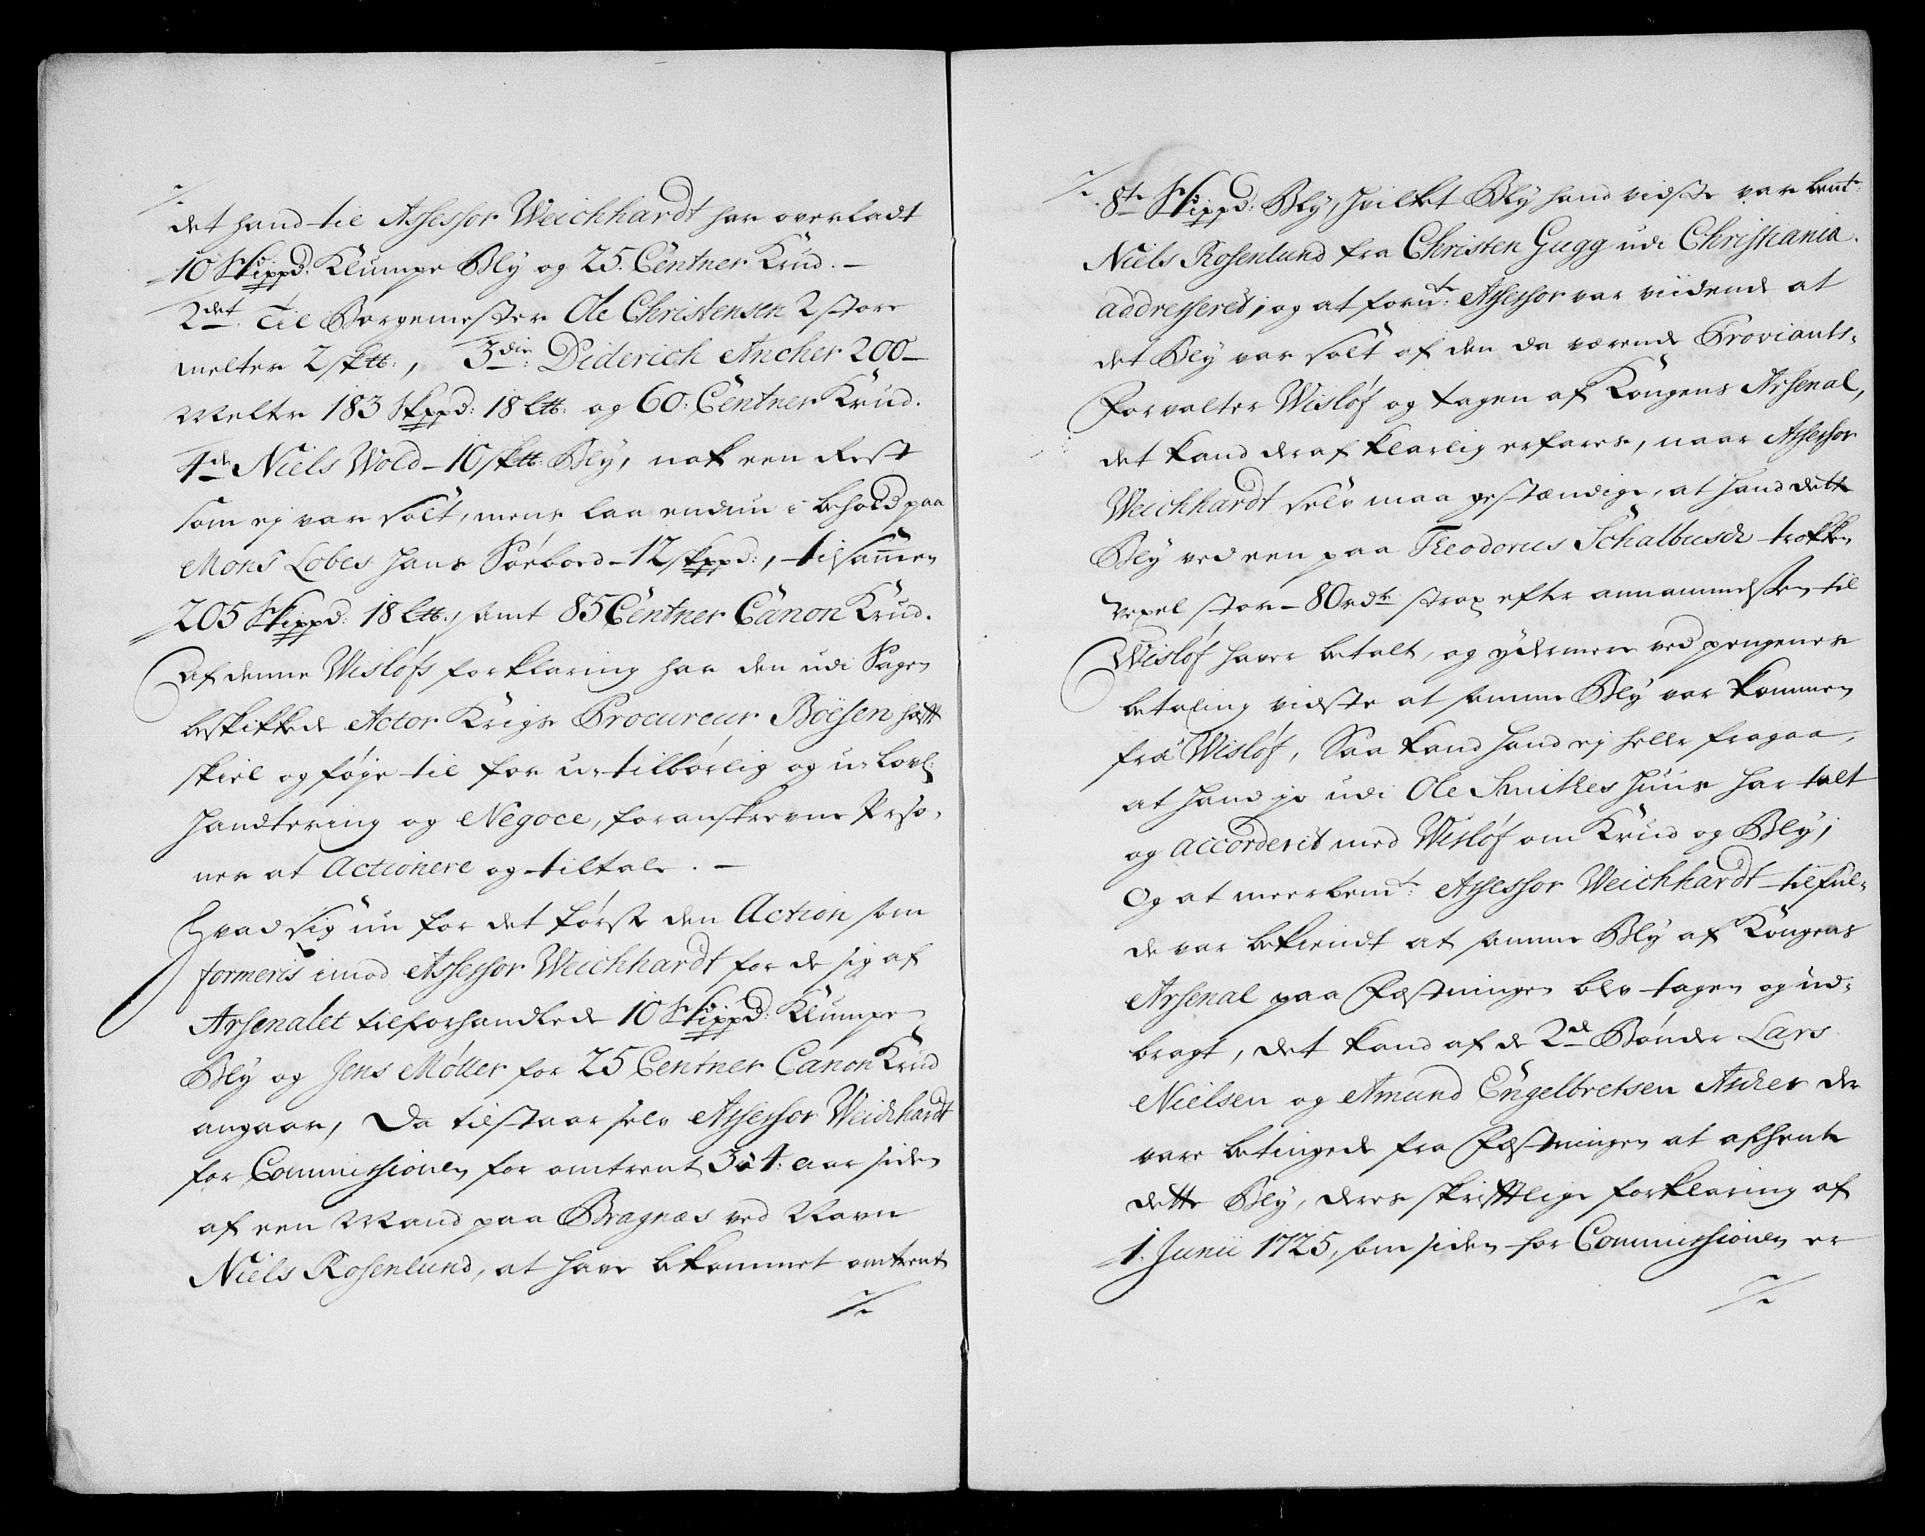 det hand til Assessor Weichhardt har overladt
10 Skippd: Klumpe Bly og 25. Centner Krud. –
2det. Til Borgemester Ole Christensen 2 store
melter 2 sk℔:, 3die: Diderich Ancher 200
Melte 183 Skppd: 18 L℔: og 60: Centner Krud.
4de Niels Wold – 10 sk℔: Bly, nok een Rest
som ej var solt, mens laa endnu i behold paa
Mons Lobes hans Søebod – 12 skppd:, tilsammen
205 Skippd: 18 L℔:, samt 85 Centner Canon Krud.
Af denne Wisløfs forklaring har den udi Sagen
beskikkede Actor Krigs Procureur Böesen hafft
skiel og føje til for u-tilbørlig og u-lovl:
handtering og Negoce, foranskrevne Perso-
ner at Actionere og tiltale. –
Hvad sig nu for det første den Action som
formeris imod Assessor Weichhardt for de sig af
Arsenalet tilforhandlede 10 Skippd: Klumpe
Bly og Jens Møller for 25 Centner Canon Krud
angaar, Da tilstaar selv Assessor Weichhardt
for Commissionen for omtrent 3 a 4: aar siden
af een Mand paa Bragnæs ved Navn
Niels Rosenlund, at have bekommet omtrent
8te Skippd: Bly, hvilket Bly hand vidste var bemt:
Niels Rosenlund fra Christen Gugg udi Christiania
addresseret, og at fornte: Assessor var viidende at
det Bly var solt af den da værende Proviants-
Forvalter Wisløf og tagen af Kongens Arsenal,
det kand deraf klarlig erfares, naar Assessor
Weichhardt selv maa gestændige, at hand dette
Bly ved een paa Theodorus Schalbusch trokken
Vexel stor – 80 rdr: strax efter annammelsen til
Wisløf haver betalt, og ydermere ved pengenes
betaling vidste at samme Bly var kommen
fra Wisløf, Saa kand hand ej heller fragaa,
at hand jo udi Ole Smithes Huus har talt
og accorderit med Wisløf om Krud og Bly;
Og at meerbemte: Assessor Weichhardt tilful-
de var bekiendt at samme Bly af Kongens
Arsenal paa Fæstningen blev tagen og ud-
bragt, det kand af de 2de Bønder Lars
Nielsen og Amund Engelbretsen Ascher der
vare betingede fra Fæstningen at afhente
dette Bly, deres skrifftlige forklaring af
1. Junii 1725, som siden for Commissionen er